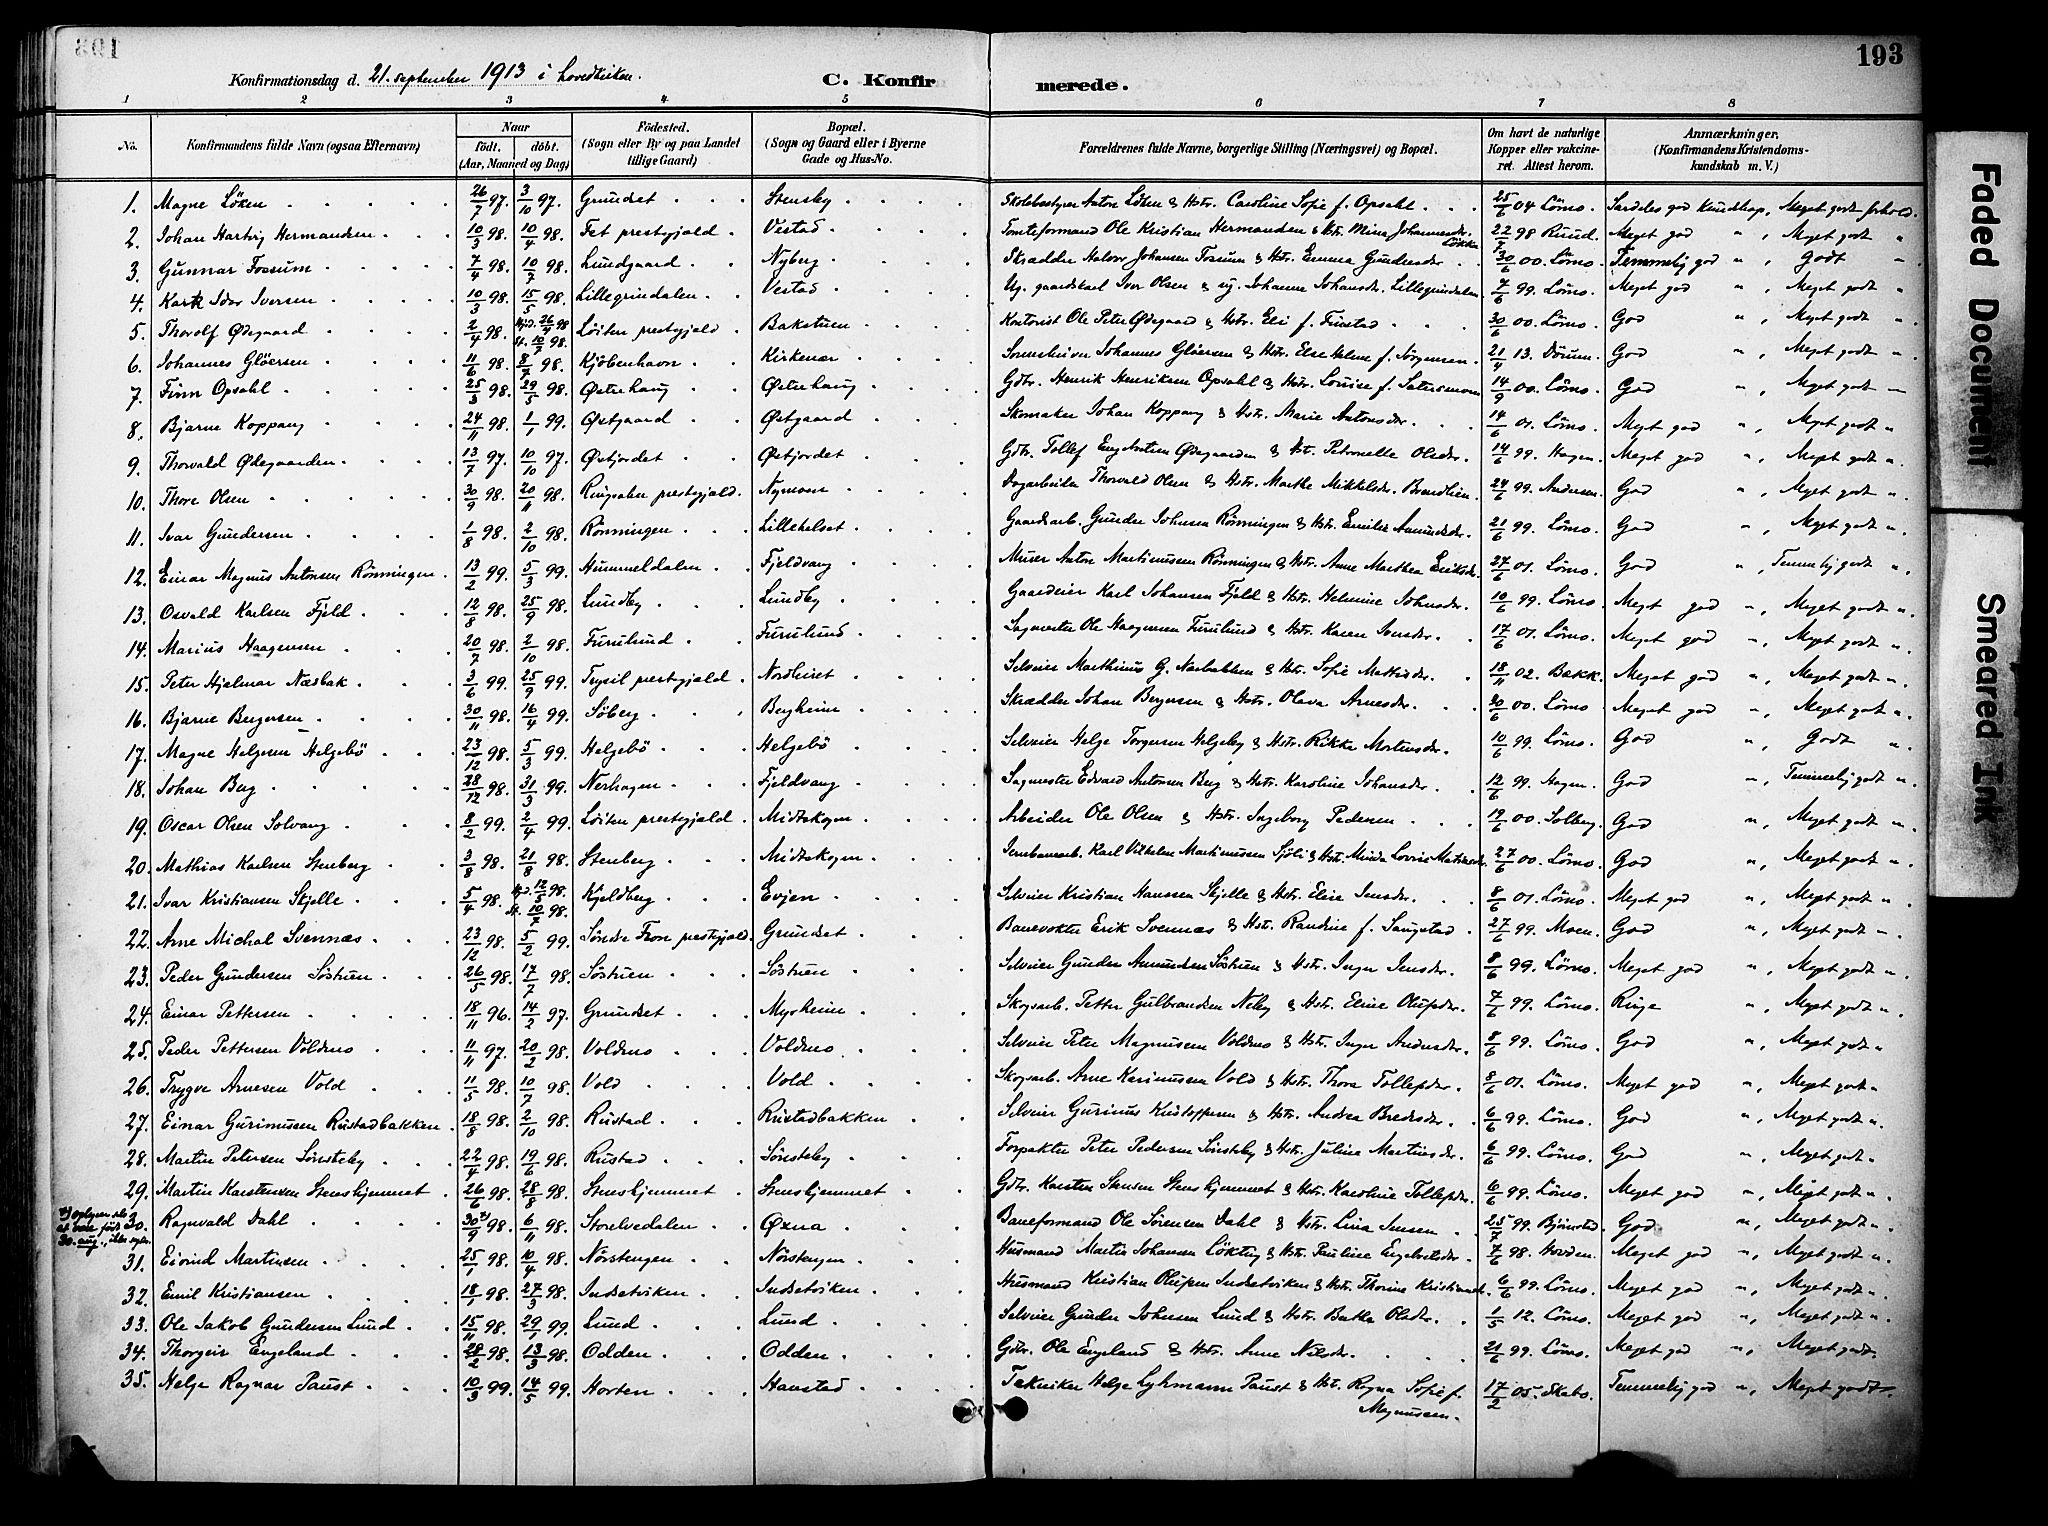 193
Konfirmationsdag d. 21. september 1913 i hovedkirken. C. Konfirmerede.
1 2 3 4 5 6 7 8
No. Konfirmandens fulde Navn (ogsaa Efternavn) Naar født. døbt. (Aar, Maaned og Dag) Fødested. (Sogn eller By og paa Landet tillige Gaard) Bopæl. (Sogn og Gaard eller i Byerne Gade og Hus-No. Forældrenes fulde Navne, borgerlige Stilling (Næringsvei) og Bopæl. Om havt de naturlige Kopper eller vakcineret. Attest herom. Anmærkninger. (Konfirmandens Kristendomskundskab m. V.)
1. Magne Löken 26/7 97. 3/10 97. Grundset Stensby Skolebestyrer Anton Löken & Hstr. Caroline Sofie f. Opsahl 25/6 04 Lömo. Særdeles god Kundskap, Meget godt forhold.
2. Johan Hartvig Hermansen 10/3 98. 10/4 98. Fet prestgjald Vestad Tomteformand Ole Kristian Hermansen & Hstr. Mina Johannesdr. Løkke 22/7 98 Ruud. Meget god " , Meget godt "
3. Gunnar Fossum 7/4 98. 10/7 98. Lundgaard Nyberg Skrædder Halvor Johansen Fossum & Hstr. Emma Gundersdr. 30/6 00. Lömo. Temmelig god " , Godt "
4. Karl Idar Iversen 10/3 98. 15/5 98. Lillegrindalen Vestad Ug. gaardskarl Iver Olsen & ug. Johanne Johansdr. Lillegrindalen 7/6 99. Lömo. Meget god " , Meget godt "
5. Thorolf Ødegaard 2/4 98. Hjd. 26/4 98 st. 10/7 98. Løiten prestgjald Bakstuen Kontorist Ole Peter Ødegaard & Hstr. Eli f. Finstad 30/6 00. Lömo. God " , Meget godt "
6. Johannes Glöersen 11/6 98. 8/7 98. Kjöbenhavn Kirkenær Sorenskriver Johannes Glöersen & Hstr. Else Helene f. Jörgensen. 21/4 13. Dörum. God " , Meget godt "
7. Finn Opsahl 25/3 98. 29/5 98. Østerhaug Østerhaug Gdbr. Henrik Henriksen Opsahl & Hstr. Louise f. Sætersmoen 14/9 00. Lömo. God " , Meget godt "
8. Bjarne Koppang 24/11 98. 1/1 99. Østgaard Østgaard Skomaker Johan Koppang & Hstr. Marie Antonsdr. 14/6 01. Lömo. Meget god " , Meget godt "
9. Thorvald Ødegaarden 13/7 97. 10/10 97. Østjordet Østjordet Gdbr. Tollef Engebretsen Ødegaarden & Hst. Petronelle Olsdr. 14/6 99. Hagen. Meget god " , Meget godt "
10. Thore Olsen 30/9 98. 20/11 98. Ringsaker prestgjald. Nymoen Dagarbeider Thorvald Olsen & Hstr. Marthe Mikkelsdr. Brendlien. 24/6 99. Andersen. God " , Meget godt "
11. Ivar Gundersen 1/8 98. 2/10 98. Rönningen Lillehelset Gaardsarb. Gunder Johnsen Rönningen & Hstr. Emilie Amundsdr. 21/6 99. Lömo. God " , Meget godt "
12. Einar Magnus Antonsen Rönningen 13/2 99. 5/3 99. Hummeldalen Fjeldvang Murer Anton Martinussen Rönningen & Hstr. Anne Marthea Eriksdr. 27/6 01. Lömo. God " , Temmelig godt "
13. Osvald Karlsen Fjeld 12/8 98. 25/9 98. Lundby Lundby Gaardeier Karl Johansen Fjeld & Hstr. Helmine Johnsdr. 10/6 99. Lömo. Meget god " , Meget godt "
14. Marius Haagensen 20/7 98. 2/10 98. Furulund Furulund Sagmester Ole Haagensen Furulund & Hstr. Karen Iversdr. 17/6 01. Lömo. Meget god " , Meget godt "
15. Peter Hjalmar Næsbak 3/6 99. 25/9 99. Trysil prestgjald Nordhuset Selveier Marthinus G. Næsbakken & Hstr. Sofie Mathisdr. 18/11 02. Bakk. Meget god " , Meget godt "
16. Bjarne Bergersen 30/11 98. 16/4 99. Søberg Bergheim Skrædder Johan Bergersen & Hstr. Olava Arnesdr. 30/6 00. Lömo Meget god " , Meget godt "
17. Magne Helgesen Helgebö 23/12 98. 5/3 99. Helgebö Helgebö Selveier Helge Torgersen Helgeby & Hstr. Rikke Mortensdr. 10/6 99. Lömo. God " , Godt "
18. Johan Berg 28/12 98. 31/3 99. Nerhagen Fjeldvang Sagmester Edvard Antonsen Berg & Hstr. Karoline Johansdr. 12/6 99. Hagen. God " , Temmelig godt "
19. Oscar Olsen Solvang 8/2 99. 2/4 99. Løiten prestgjald Midtskogen Arbeider Ole Olsen & Hstr. Ingeborg Pedersen 19/6 00. Solberg. God " , Meget godt "
20. Mathias Karlsen Stenberg 3/8 98. 21/8 98. Stenberg Midtskogen Jernbanearb. Karl Vilhelm Martinussen Sjöli & Hstr. Minda Lovise Mathisdr. 27/6 00. Lömo. God " , Meget godt "
21. Ivar Kristiansen Skjelle 5/4 98. Hjd. 12/5 98. st. 10/7 98. Kjeldberg Evjen Selveier Kristian Hanssen Skjelle & Hstr. Elise Jensdr. 8/6 01. Lömo. Meget god " , Meget godt "
22. Arne Michal Svennæs 23/12 98. 5/2 99. Søndre Fron prestgjald. Grundset Banevokter Erik Svennæs & Hstr. Randine f. Sangstad 27/6 99. Moen. God " , Meget godt "
23. Peder Gundersen Söstuen 26/5 98. 17/7 98. Söstuen Söstuen Selveier Gunder Amundsen Söstuen & Hstr. Inger Jensdr. 8/6 99. Lömo. Meget god " , Meget godt "
24. Einar Pettersen 18/11 96. 14/2 97. Grundset Myrheim Skogsarb. Petter Gulbrandsen Neby & Hstr. Eline Olufsdr. 7/6 99. Lömo. Ringe " , Meget godt "
25. Peder Pettersen Voldmo 11/11 97. 20/2 98. Voldmo Voldmo Selveier Peter Magnussen Voldmo & Hstr. Inger Andersdr. 8/6 99. Lömo. God " , Meget godt "
26. Trygve Arnesen Vold 11/5 98. 10/7 98. Vold Vold Skogsarb. Arne Karinussen Vold & Hstr. Thora Tollefsdr. 8/6 01. Lömo. Meget god " , Meget godt "
27. Einar Gurinussen Rustadbakken 18/8 98. 2/10 98. Rustad Rustadbakken Selveier Gurinus Kristoffersen & Hstr. Andrea Bredesdr. 6/6 99. Lömo. God " , Meget godt "
28. Martin Petersen Sönsteby 22/4 98. 19/6 98. Rustad Sönsteby Forpakter Peter Pedersen Sönsteby & Hstr. Julina Martinsdr. 6/6 99. Lömo. God " , Meget godt "
29. Martin Karstensen Stenshjemmet 26/6 98. 28/8 98. Stenshjemmet Stenshjemmet Gdbr. Karsten Stensen Stenshjemmet & Hstr. Karoline Tollefsdr. 6/6 99. Lömo. Meget god " , Meget godt "
*) oplyser selv at være født 30. aug., ikke septr.
30. Ragnvald Dahl 30*)/9 98. 6/11 98. Storelvedalen Øxna Baneformand Ole Sörensen Dahl & Hstr. Lina Jensen 25/7 99. Björnstad. God " , Meget godt "
31. Eivind Martinsen 25/1 98. 10/4 98. Nörstengen Nörstengen Husmand Martin Johansen Lökting & Hstr. Pauline Engebretsdr. 7/6 98. Hovden. Meget god " , Meget godt "
32. Emil Kristiansen 18/1 98. 27/3 98. Indsetviken Indsetviken Husmand Kristian Olufsen Indsetviken & Hstr. Thorine Kristiansdr. 6/6 99. Lömo. Meget god " , Meget godt "
33. Ole Jakob Gundersen Lund 15/11 98. 29/1 99. Lund Lund Selveier Gunder Johnsen Lund & Hstr. Berthe Olsdr. 1/5 12. Lömo. Meget god " , Meget godt "
34. Thorgeir Engeland 28/2 98. 13/3 98. Odden Odden Gdbr. Ole Engeland & Hstr. Anne Nilsdr. 21/6 99. Lömo. Meget god " , Meget godt "
35. Helge Ragnar Paust 10/3 99. 14/5 99. Horten Hanstad Tekniker Helge Lyhmann Paust & Hst. Ragna Sofie f. Magnussen. 17/2 05. Skabo. Temmelig god " , Meget godt "
Faded Document
Smeared Ink